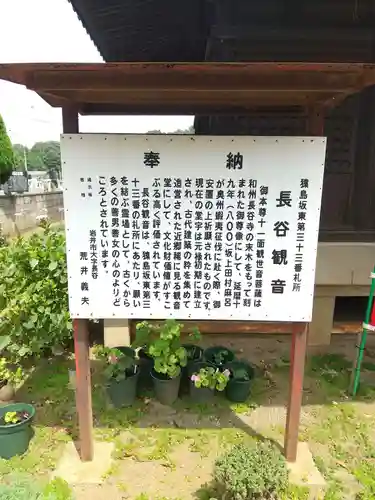 奉納
猿島坂東第三十三番札所
長谷観音
御本尊十一面観世音菩薩は
和州長谷寺の霊木をもって刻
まれた御尊像にして、延暦十
九年(八〇〇)坂上田村麻呂
が奥州蝦夷征伐に際し、武運
安護の上祈願されたものです。
現在の堂宇は元禄期に再建
され、古代建築の粋を集めて
造営された近郷稀に見る観音
堂にして、文化財価値あ
る高く評価されています。
長谷観音は、猿島坂東第三
十三番の札所にあたり、願い
を結ぶ霊場として、古くから
多くの善男善女の心のよりど
ころとされています。
岩井市大字長谷
荒井義夫